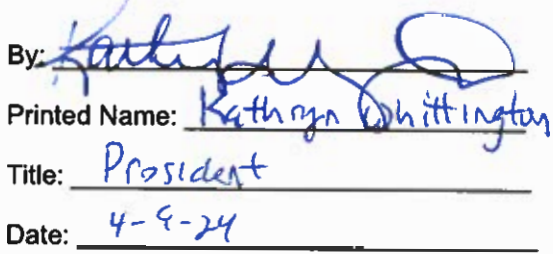 By:
Printed Name: Kathryn Whittington
Title: President
Date: 4-9-24